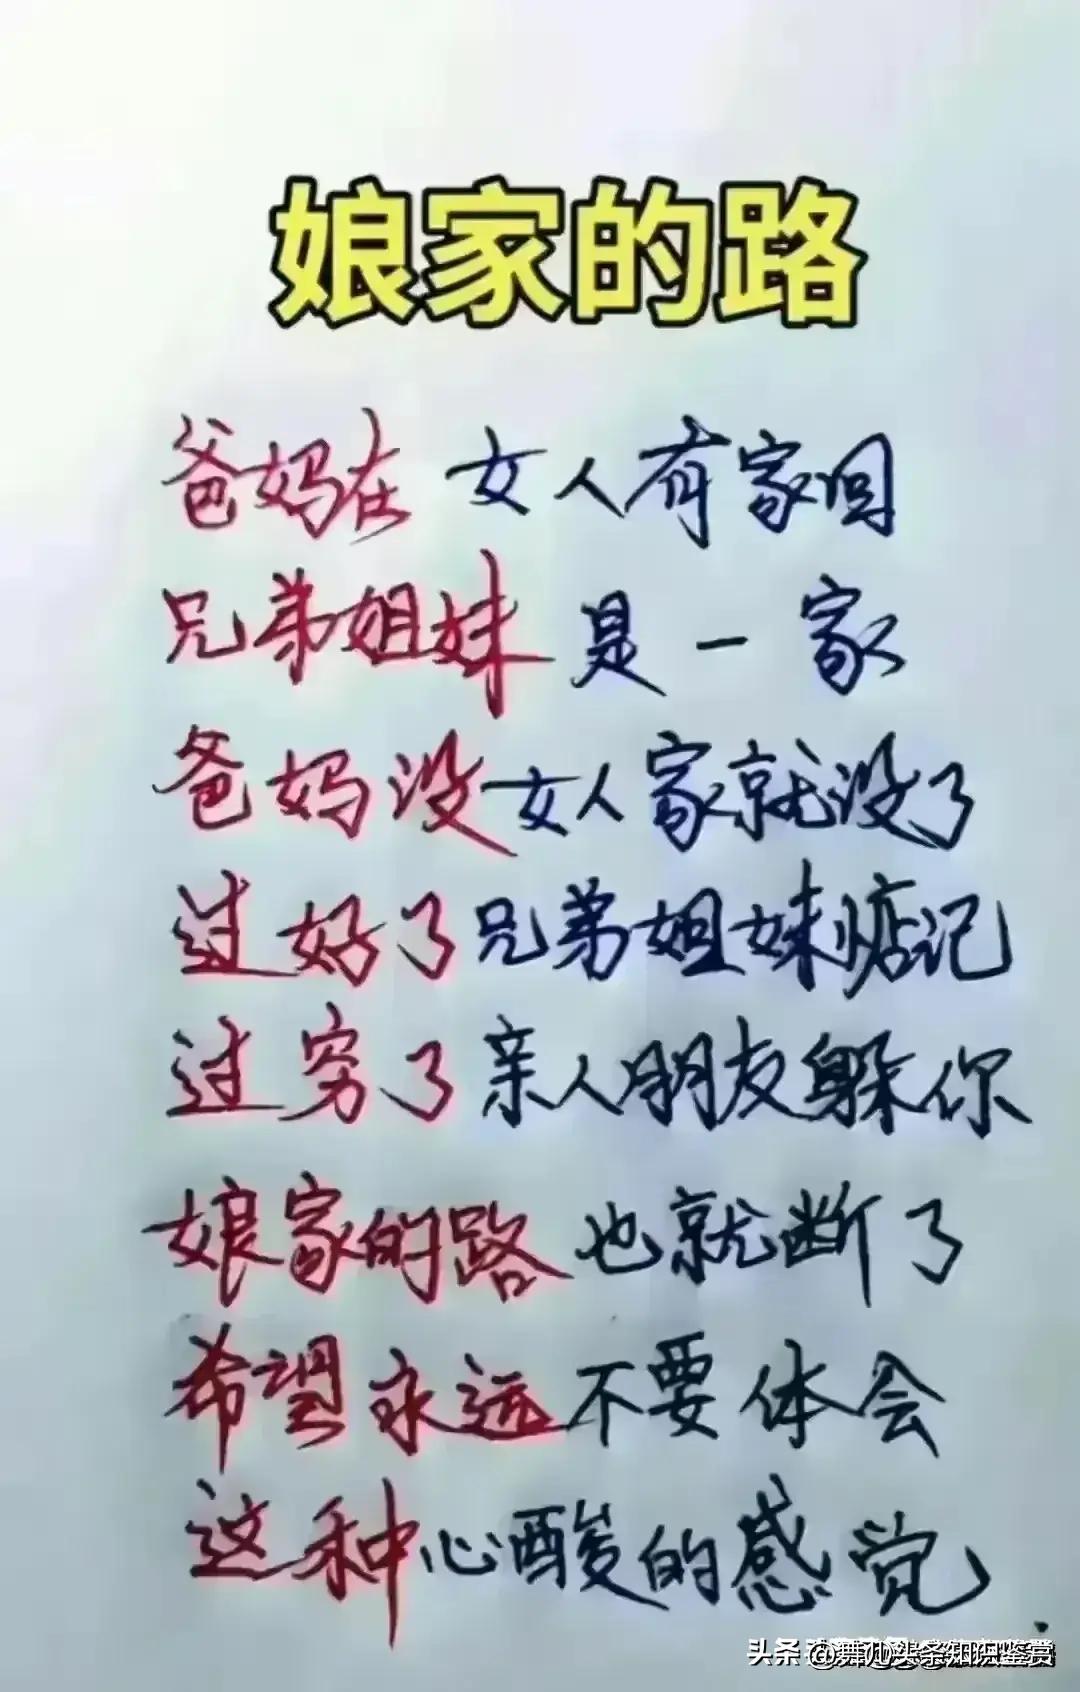 娘家的路
爸妈在 女人有家回
兄弟姐妹 是一家
爸妈没女人家就没了
过好了兄弟姐妹惦记
过穷了亲人朋友躲你
娘家的路也就断了
希望永远不要体会
这种心酸的感觉.
头条